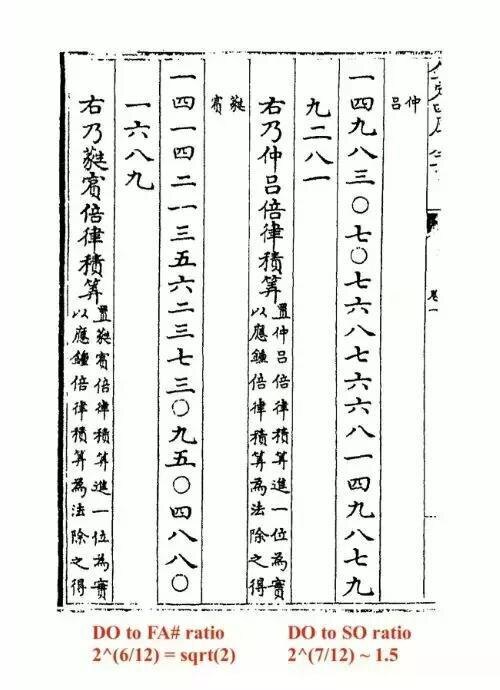 卷一
仲呂
一四九八三〇七〇七六八七六六八一四九八七九
九二八一
右乃仲呂倍律積筭
置仲呂倍律積筭進一位為實
以應鍾倍律積筭為法除之得
蕤賓
一四一四二一三五六二三七三〇九五〇四八八〇
一六八九
右乃蕤賓倍律積筭
置蕤賓倍律積筭進一位為實
以應鍾倍律積筭為法除之得
DO to FA# ratio
2^(6/12) = sqrt(2)
DO to SO ratio
2^(7/12) ~ 1.5